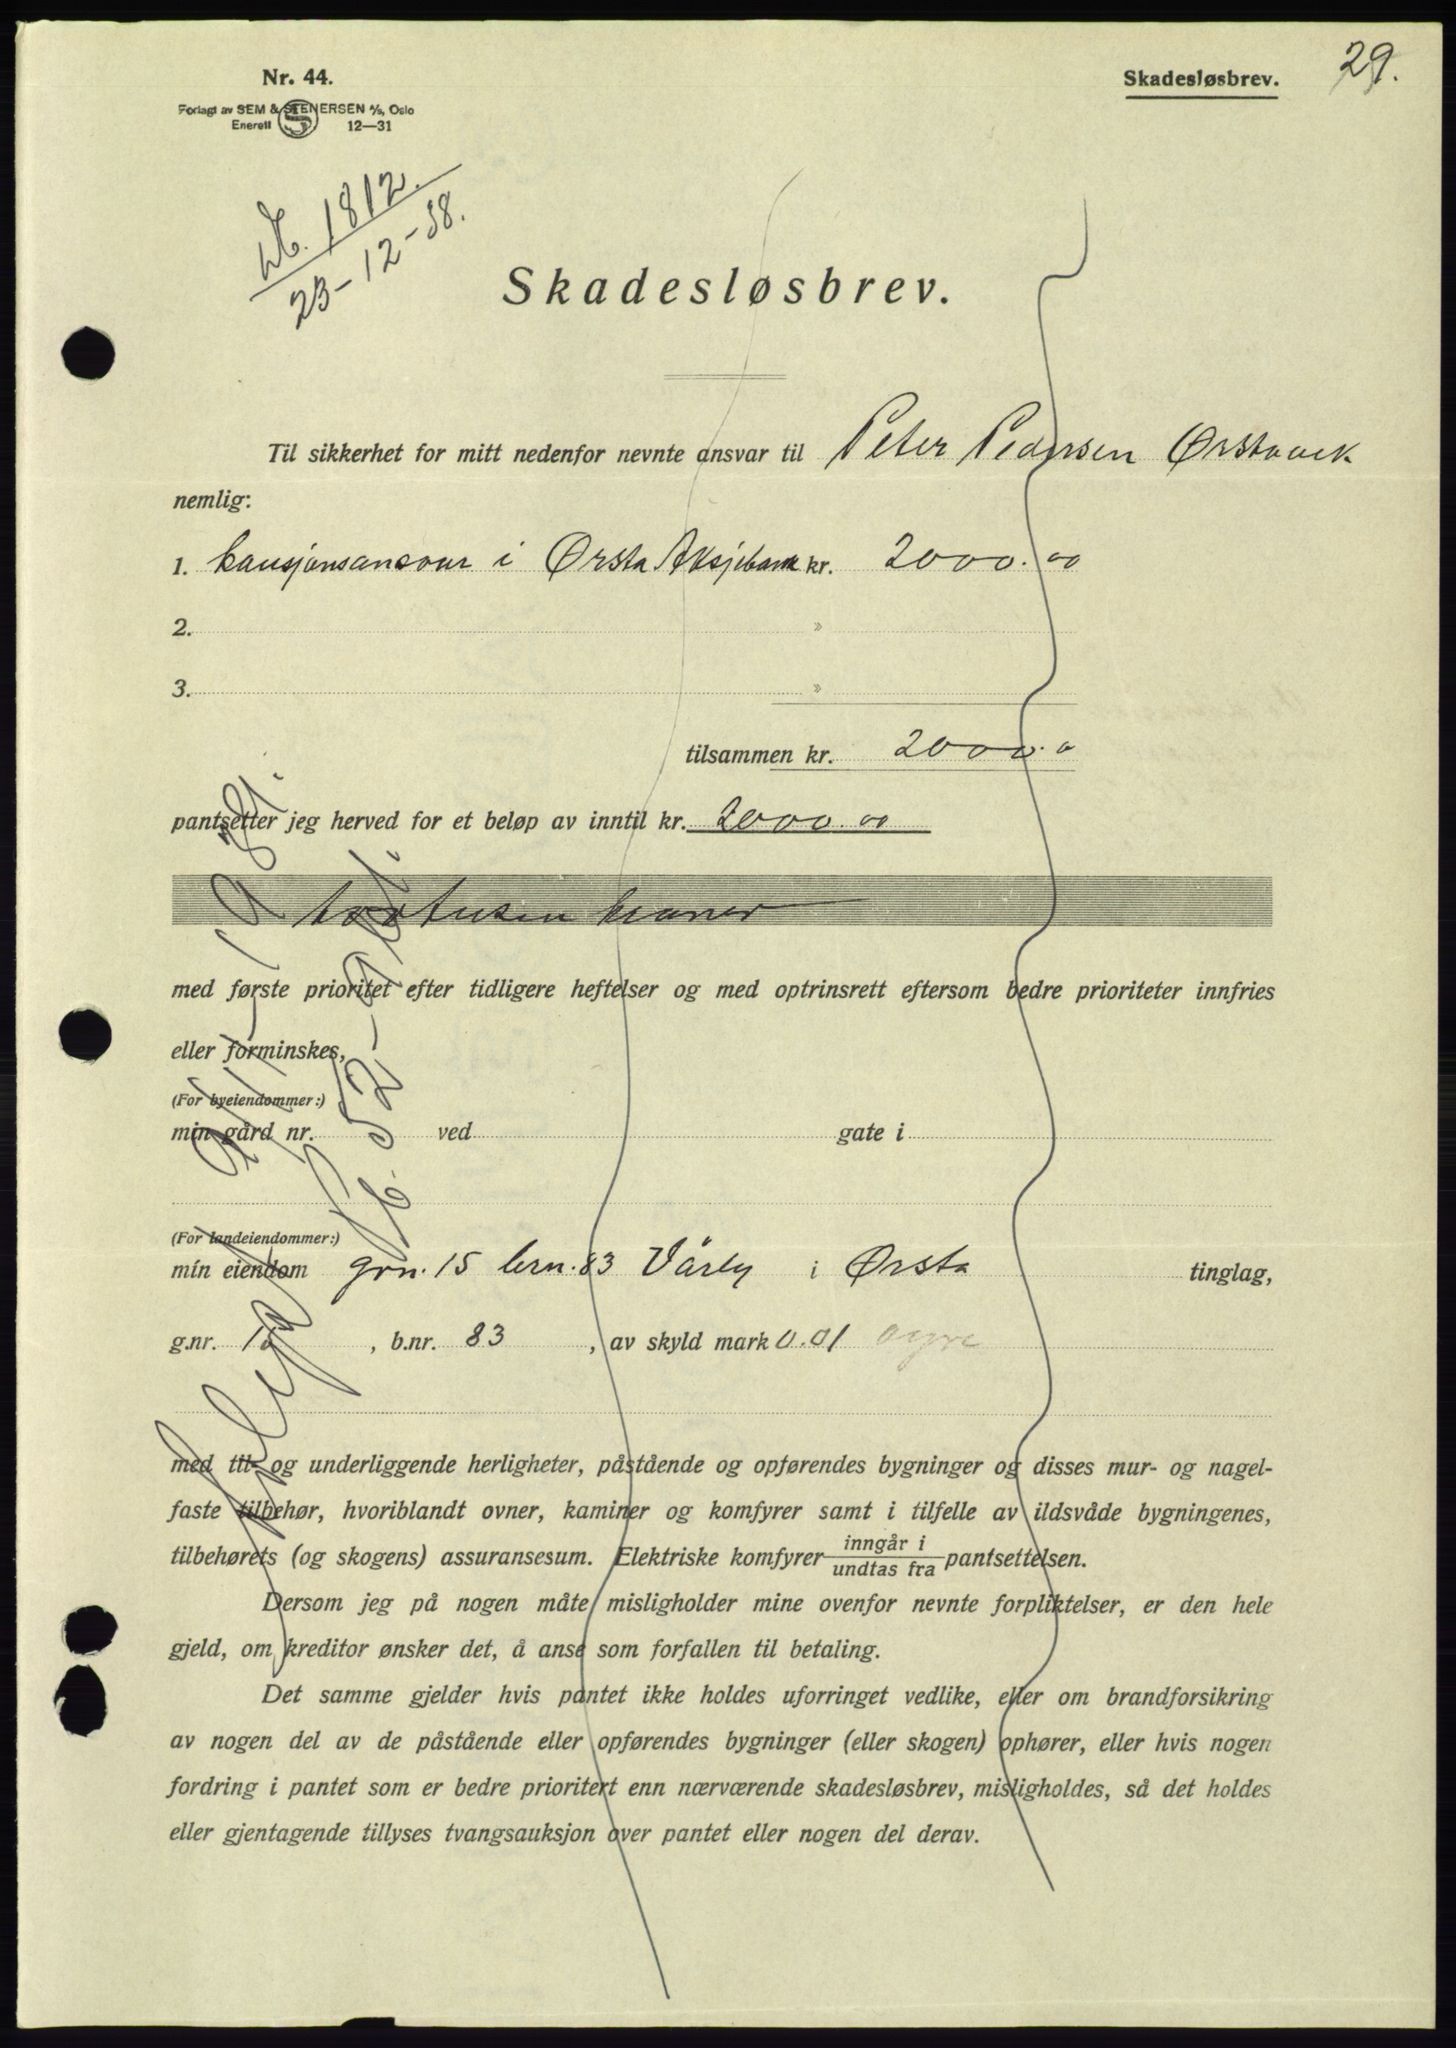 29.
Nr. 44.
Skadesløsbrev.
Forlagt av SEM & STENERSEN A/S, Oslo
Enerett 12—31
1812.
23-12-38.
Skadesløsbrev.
Til sikkerhet for mitt nedenfor nevnte ansvar til Peter Pedersen Ørstavik
nemlig:
1. kausjonsansvar i Ørsta Aksjebank kr. 2000.00
2. »
3. »
tilsammen kr. 2000.0
pantsetter jeg herved for et beløp av inntil kr. 2000.00
totusen kroner
med første prioritet efter tidligere heftelser og med optrinsrett eftersom bedre prioriteter innfries
eller forminskes,
(For byeiendommer:)
min gård nr. ved gate i
(For landeiendommer:)
min eiendom grn. 15 brn. 83 Vårly i Ørsta tinglag,
g.nr. 15, b.nr. 83, av skyld mark 0.01 øyre
med til- og underliggende herligheter, påstående og opførendes bygninger og disses mur- og nagel-
faste tilbehør, hvoriblandt ovner, kaminer og komfyrer samt i tilfelle av ildsvåde bygningenes,
tilbehørets (og skogens) assuransesum. Elektriske komfyrer inngår i / undtas fra pantsettelsen.
Dersom jeg på nogen måte misligholder mine ovenfor nevnte forpliktelser, er den hele
gjeld, om kreditor ønsker det, å anse som forfallen til betaling.
Det samme gjelder hvis pantet ikke holdes uforringet vedlike, eller om brandforsikring
av nogen del av de påstående eller opførendes bygninger (eller skogen) ophører, eller hvis nogen
fordring i pantet som er bedre prioritert enn nærværende skadesløsbrev, misligholdes, så det holdes
eller gjentagende tillyses tvangsauksjon over pantet eller nogen del derav.